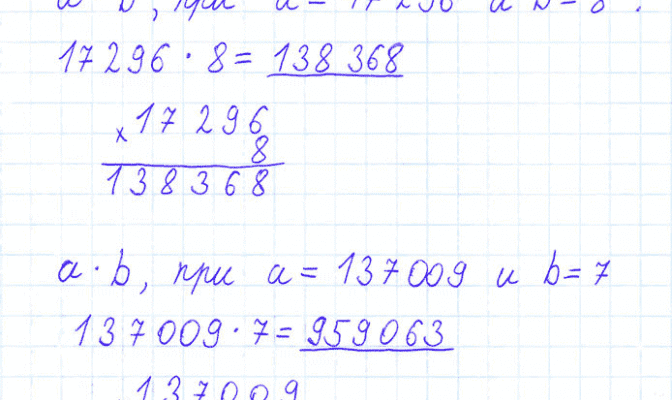 a · b, при a = 17 296 и b = 8.
17 296 · 8 = 138 368
× 17 296
8
138368
a · b, при a = 137 009 и b = 7
137009 · 7 = 959063
137009